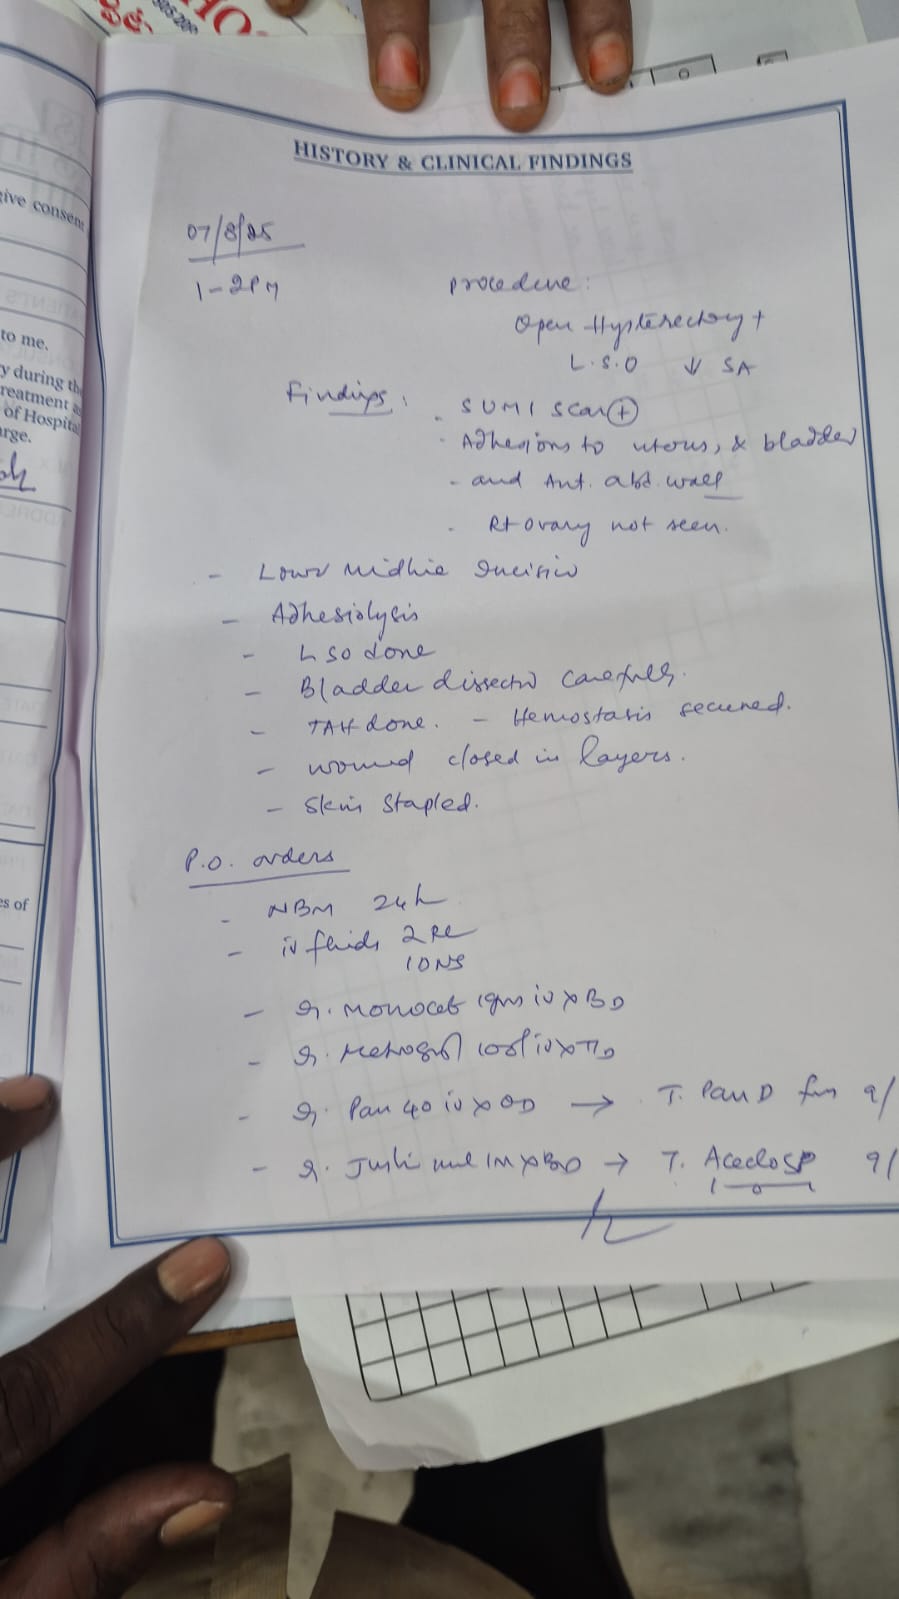 HO
give consent
to me.
y during the
reatment as
of Hospital
arge.
es of
HISTORY & CLINICAL FINDINGS
07/8/25
1-2PM
procedure:
Open Hysterectomy +
L.S.O ↓ SA
Findings:
. SUMI scar ⊕
. Adhesions to uterus, & bladder
- and Ant. abd. wall
. Rt ovary not seen.
- Lower Midline Incision
- Adhesiolysis
- LSO done
- Bladder dissected carefully.
- TAH done. - Hemostasis secured.
- wound closed in layers.
- Skin stapled.
P.O. orders
- NBM 24h
- iv fluids 2 RL
1 DNS
- Monocef 1gm iv x BD
- Metrogyl iv x TD
- Pan 40 iv x OD → T. Pan D 9/
- IM x BD → T. Aceclo SP 9/
1-0-1